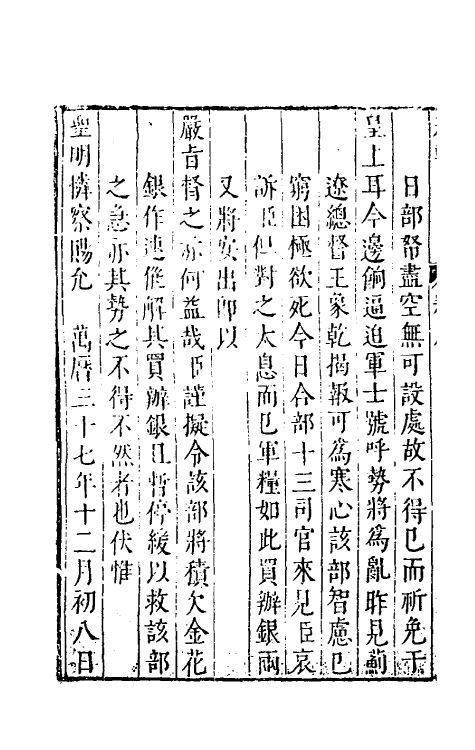 日部帑盡空無可設處故不得已而祈免于
皇上耳今邊餉逼迫軍士號呼勢將為亂昨見薊
遼總督王象乾揭報可為寒心該部智慮已
窮困極欲死今日合部十三司官來見臣哀
訴臣但對之太息而已軍糧如此買辦銀兩
又將安出即以
嚴旨督之亦何益哉臣謹擬令該部將積欠金花
銀作速催解其買辦銀且暫停緩以救該部
之急亦其勢之不得不然者也伏惟
聖明憐察賜允 萬曆三十七年十二月初八日